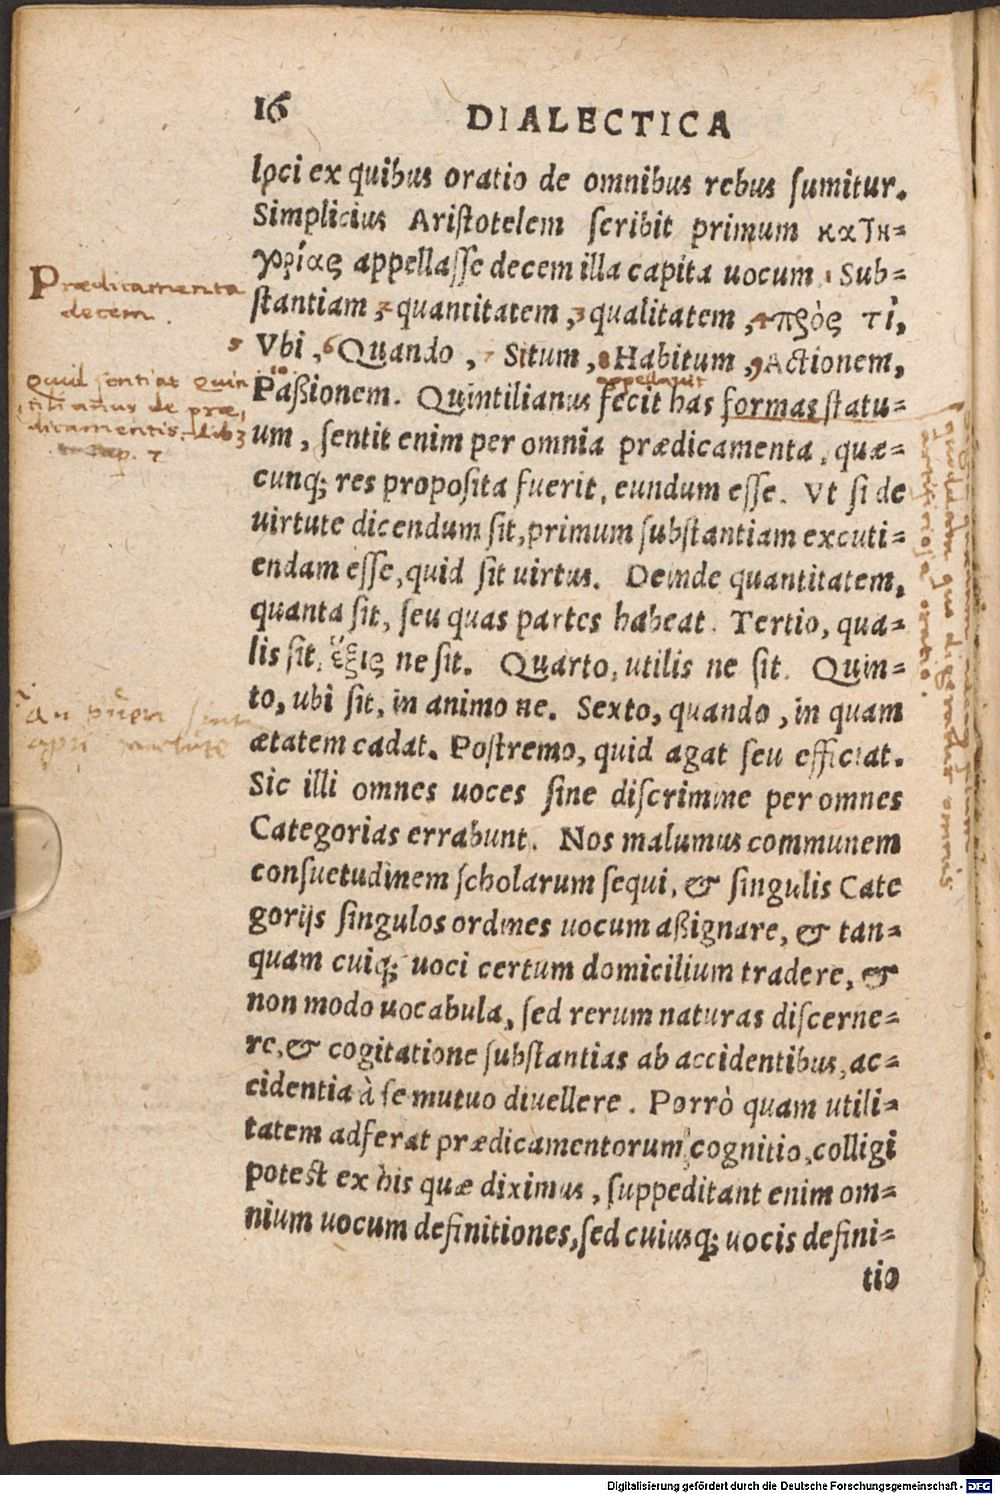 16 DIALECTICA
loci ex quibus oratio de omnibus rebus sumitur.
Simplicius Aristotelem scribit primum κατη=
γορίας appellasse decem illa capita uocum 1 Sub=
stantiam 2 quantitatem, 3 qualitatem, 4 πρὸς τὶ,
5 Vbi, 6 Quando, 7 Situm, 8 Habitum, 9 Actionem,
10
appellauit
Paßionem. Quintilianus fecit has formas statu=
um, sentit enim per omnia prædicamenta, quæ=
cunq; res proposita fuerit, eundum esse. Vt si de
uirtute dicendum sit, primum substantiam excuti=
endam esse, quid sit uirtus. Deinde quantitatem,
quanta sit, seu quas partes habeat. Tertio, qua=
lis sit, ἕξις ne sit. Quarto, utilis ne sit. Quin=
to, ubi sit, in animo ne. Sexto, quando, in quam
ætatem cadat. Postremo, quid agat seu efficiat.
Sic illi omnes uoces sine discrimine per omnes
Categorias errabunt. Nos malumus communem
consuetudinem scholarum sequi, & singulis Cate
gorijs singulos ordines uocum aßignare, & tan=
quam cuiq; uoci certum domicilium tradere, &
non modo uocabula, sed rerum naturas discerne=
re, & cogitatione substantias ab accidentibus, ac=
cidentia à se mutuo diuellere. Porrò quam utili=
tatem adferat prædicamentorum cognitio, colligi
potest ex his quæ diximus, suppeditant enim om=
nium uocum definitiones, sed cuiusq; uocis defini=
tio
Prædicamenta
decem.
quid sentiat Quin
tilianus de præ,
dicamentis. Lib 3
cap. 7
an pueri
apti
omnis
oratio.
Digitalisierung gefördert durch die Deutsche Forschungsgemeinschaft - DFG